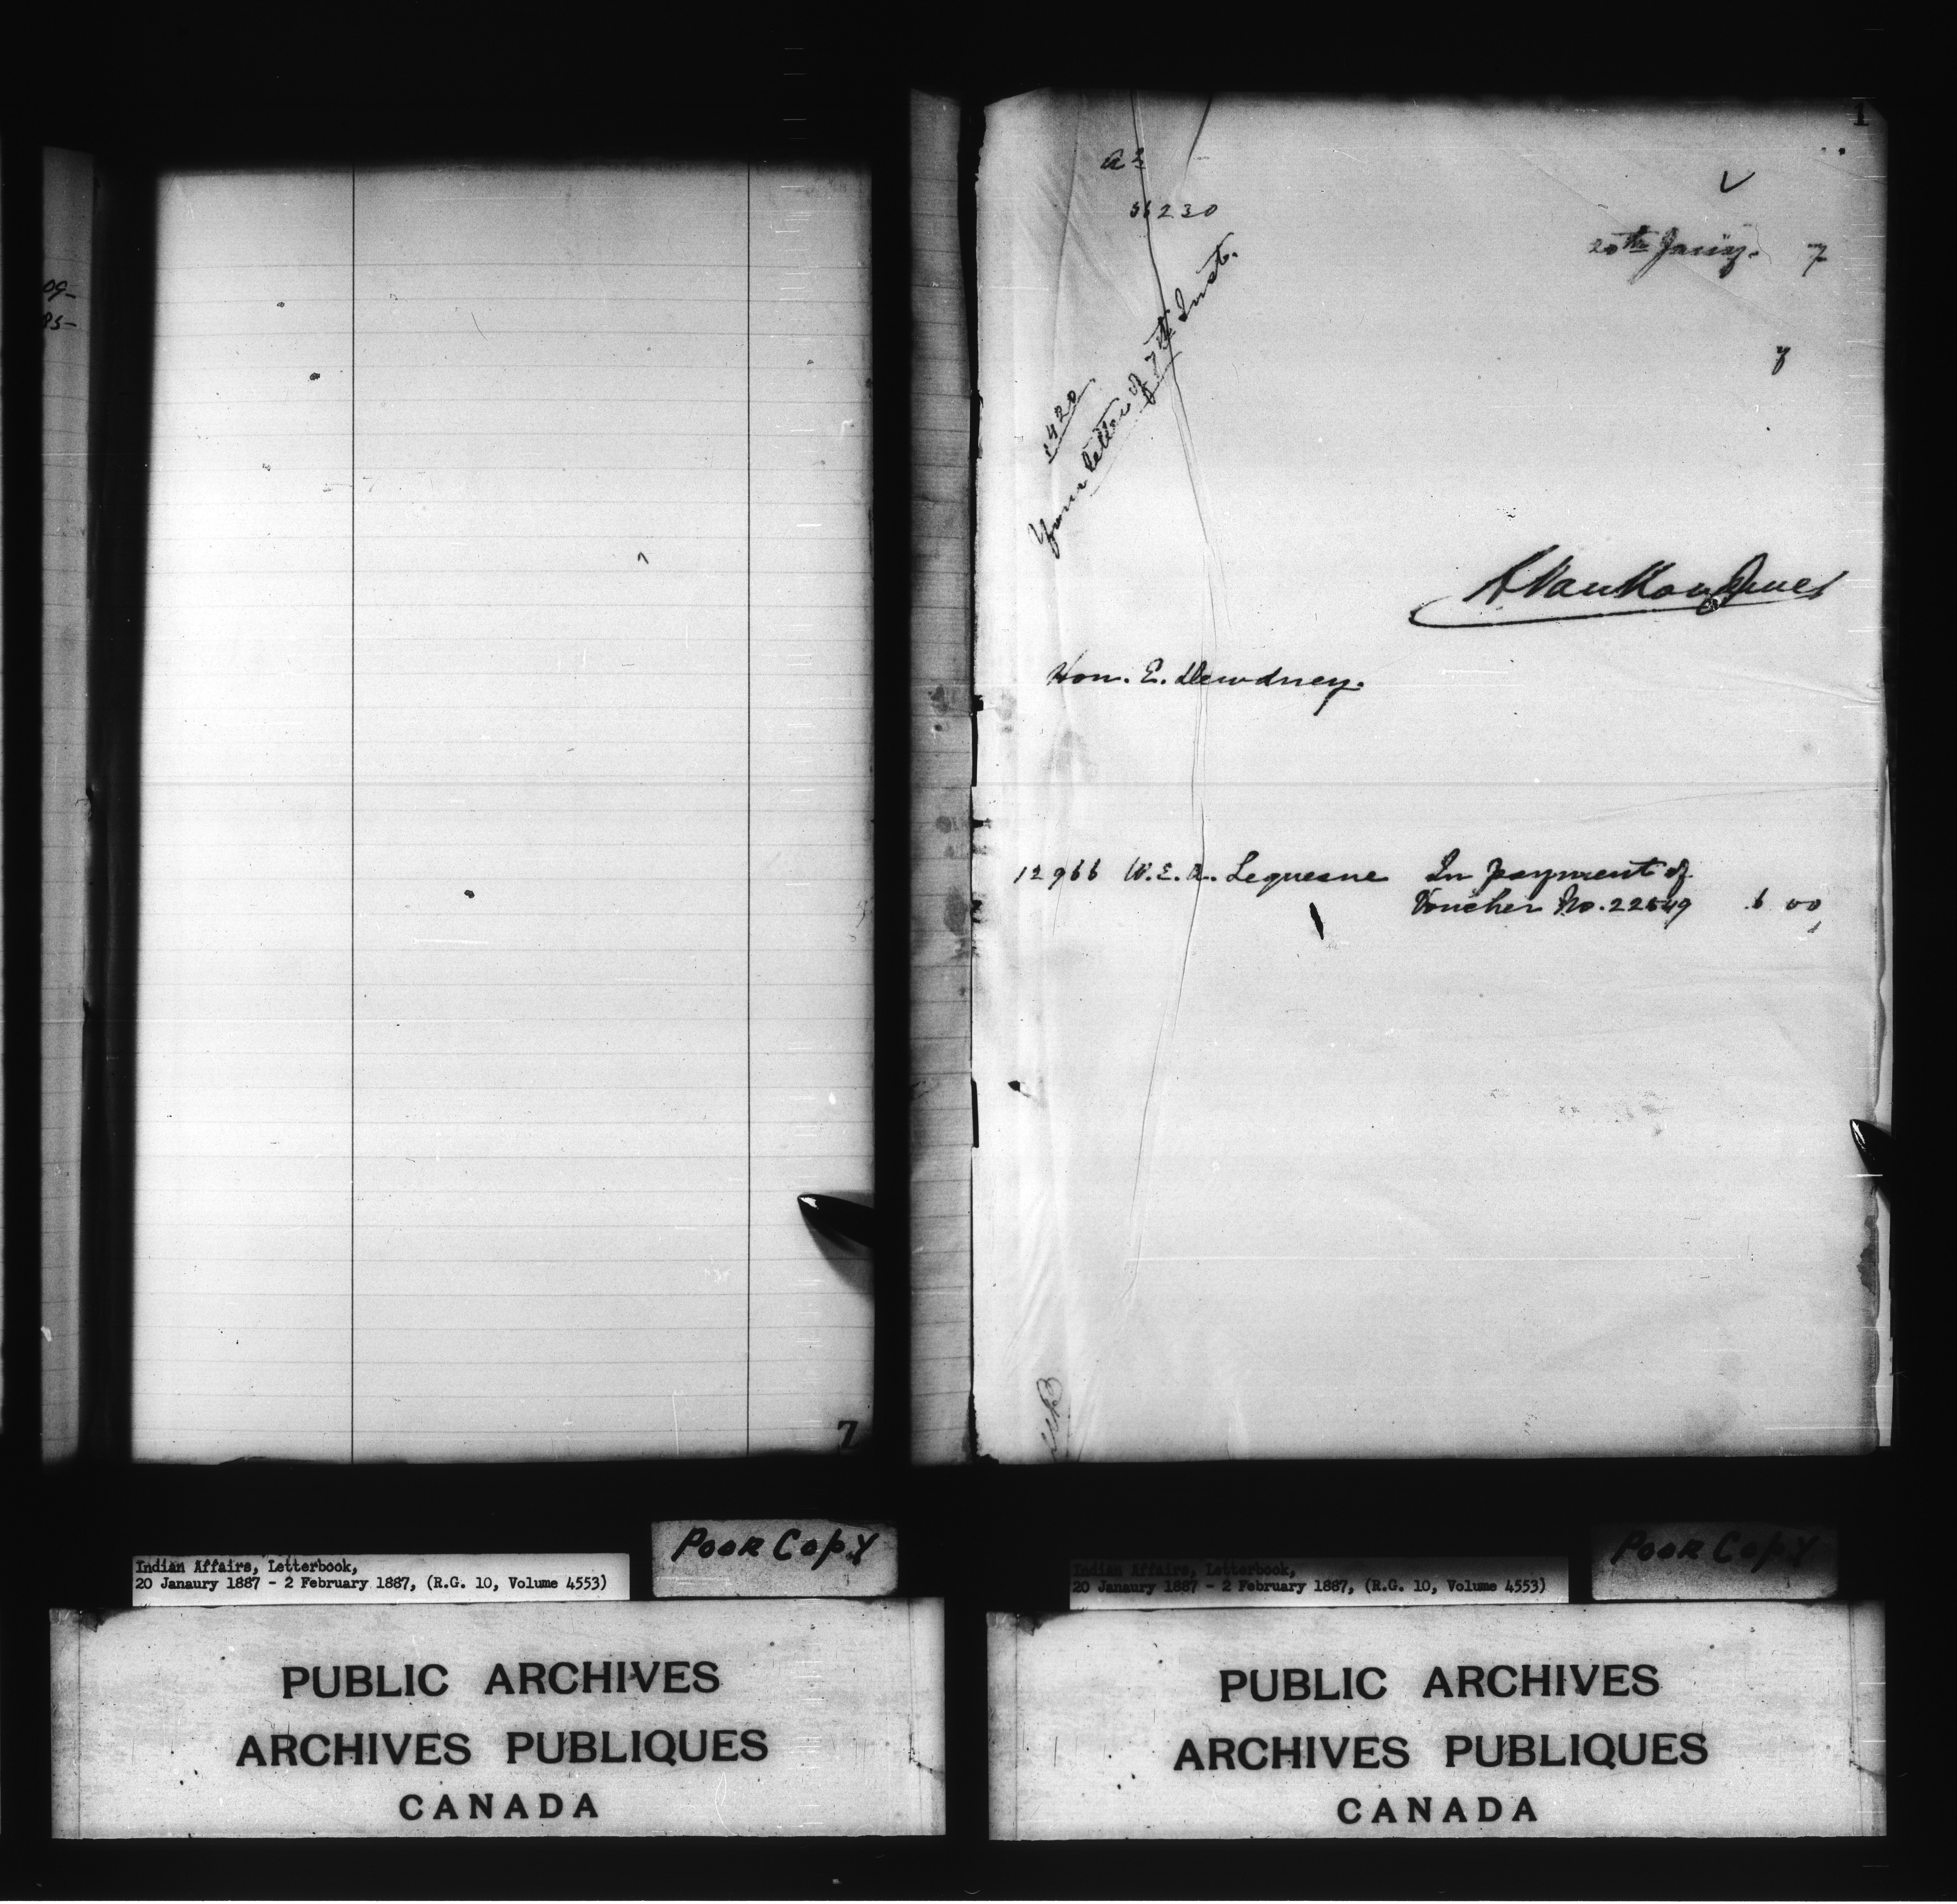 09-
85-
7
Indian Affairs, Letterbook,
20 Janaury 1887 - 2 February 1887, (R.G. 10, Volume 4553)
POOR COPY
PUBLIC ARCHIVES
ARCHIVES PUBLIQUES
CANADA
1
36230
20th Jany. 7
1420
Your letter of 7th Inst.
L VanKoughnet
Hon. E. Dewdney.
12966 W.E.A. Lequesne In payment of
Voucher No. 22549 6 00
Indian Affairs, Letterbook,
20 Janaury 1887 - 2 February 1887, (R.G. 10, Volume 4553)
POOR COPY
PUBLIC ARCHIVES
ARCHIVES PUBLIQUES
CANADA